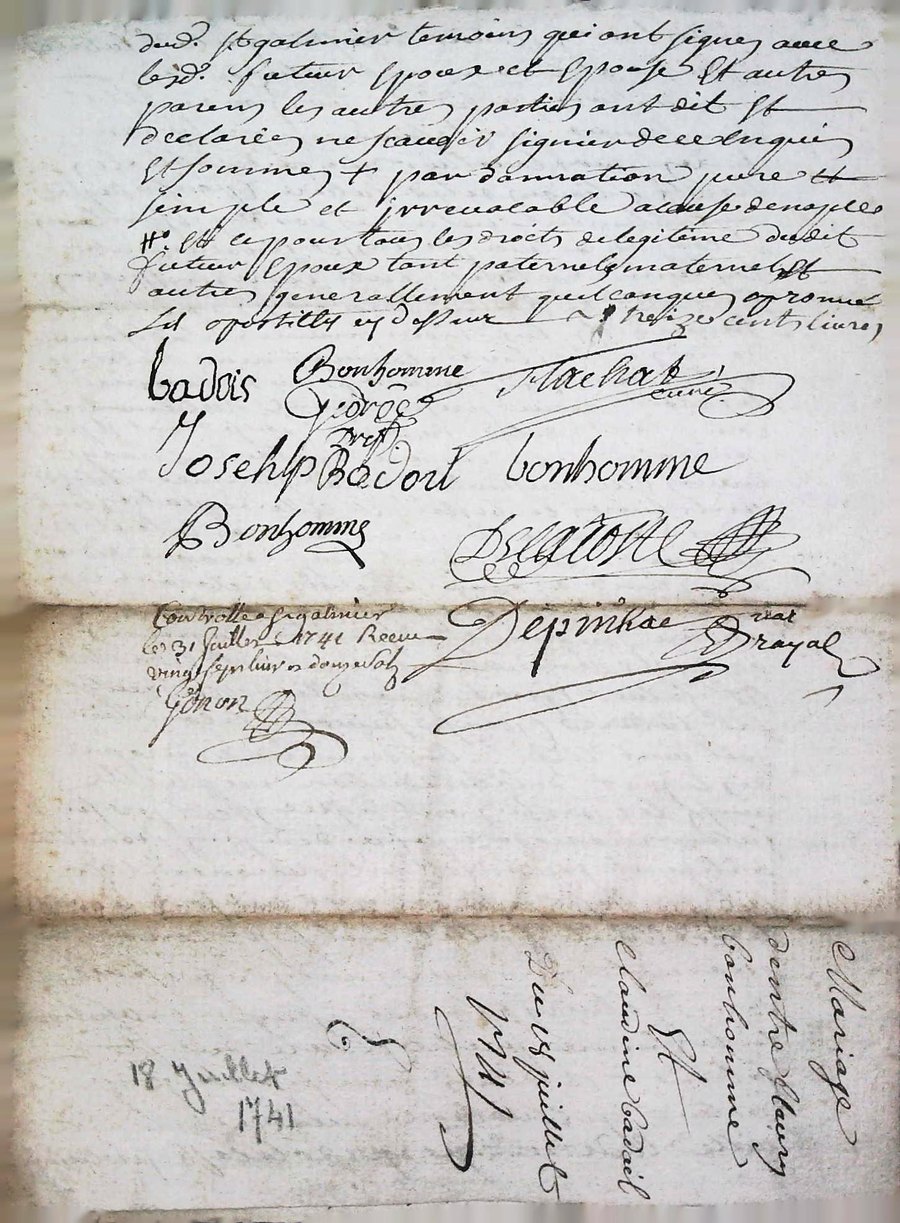 dud. St galmier temoins qui ont signes avec
lesd. futeur Epoux et Epouse Et autres
parens les autres parties ont dit Et
declarées ne scavoir signier de ce Enquis
Et sommes + par donnation pure et
simple et irrevocable a cause de nopces
Et ce pour tous les droits de legitime dudit
futeur Epoux tant paternels maternels Et
autres generallement quelconques
treize cents livres
badois Bonhomme flachat
curé
George
Joseph Badoil bonhomme
Bonhomme Delacoste
Depinhac
Controllé a St galmier
le 31 Juillet 1741 Receu
vingt sept livres douze sols
Génon
Mariage
dentre fleury
bonhomme
Et
claudine badoil
Du 18 juillet
1741
18 Juillet
1741